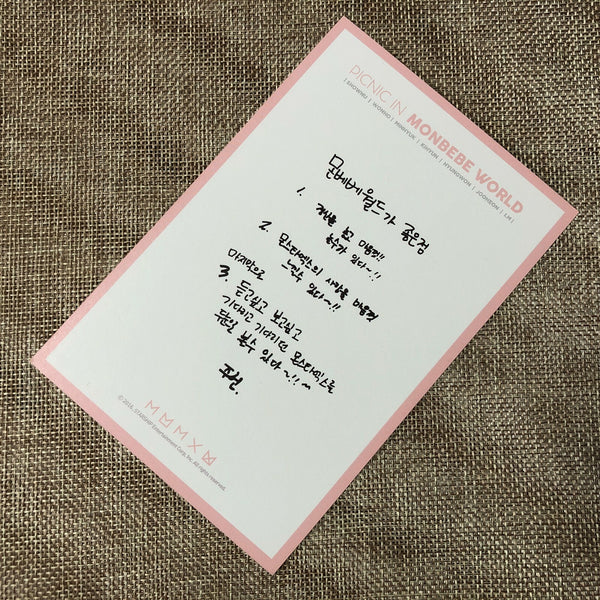 PICNIC IN MONBEBE WORLD
| SHOWNU | WONHO | MINHYUK | KIHYUN | HYUNGWON | JOOHEON | I.M |
몬베베월드가 좋은점
1. 보고 마음껏!!
수가 있다~!!
2. 몬스타엑스의 사랑을 마음껏
수 있다~!!
마지막으로
3. 듣고싶고 보고싶고
기다리고 기다리던 몬스타엑스를
볼수 있다~!!~
주헌.
© 2016. STARSHIP Entertainment Corp, Inc. All rights reserved.